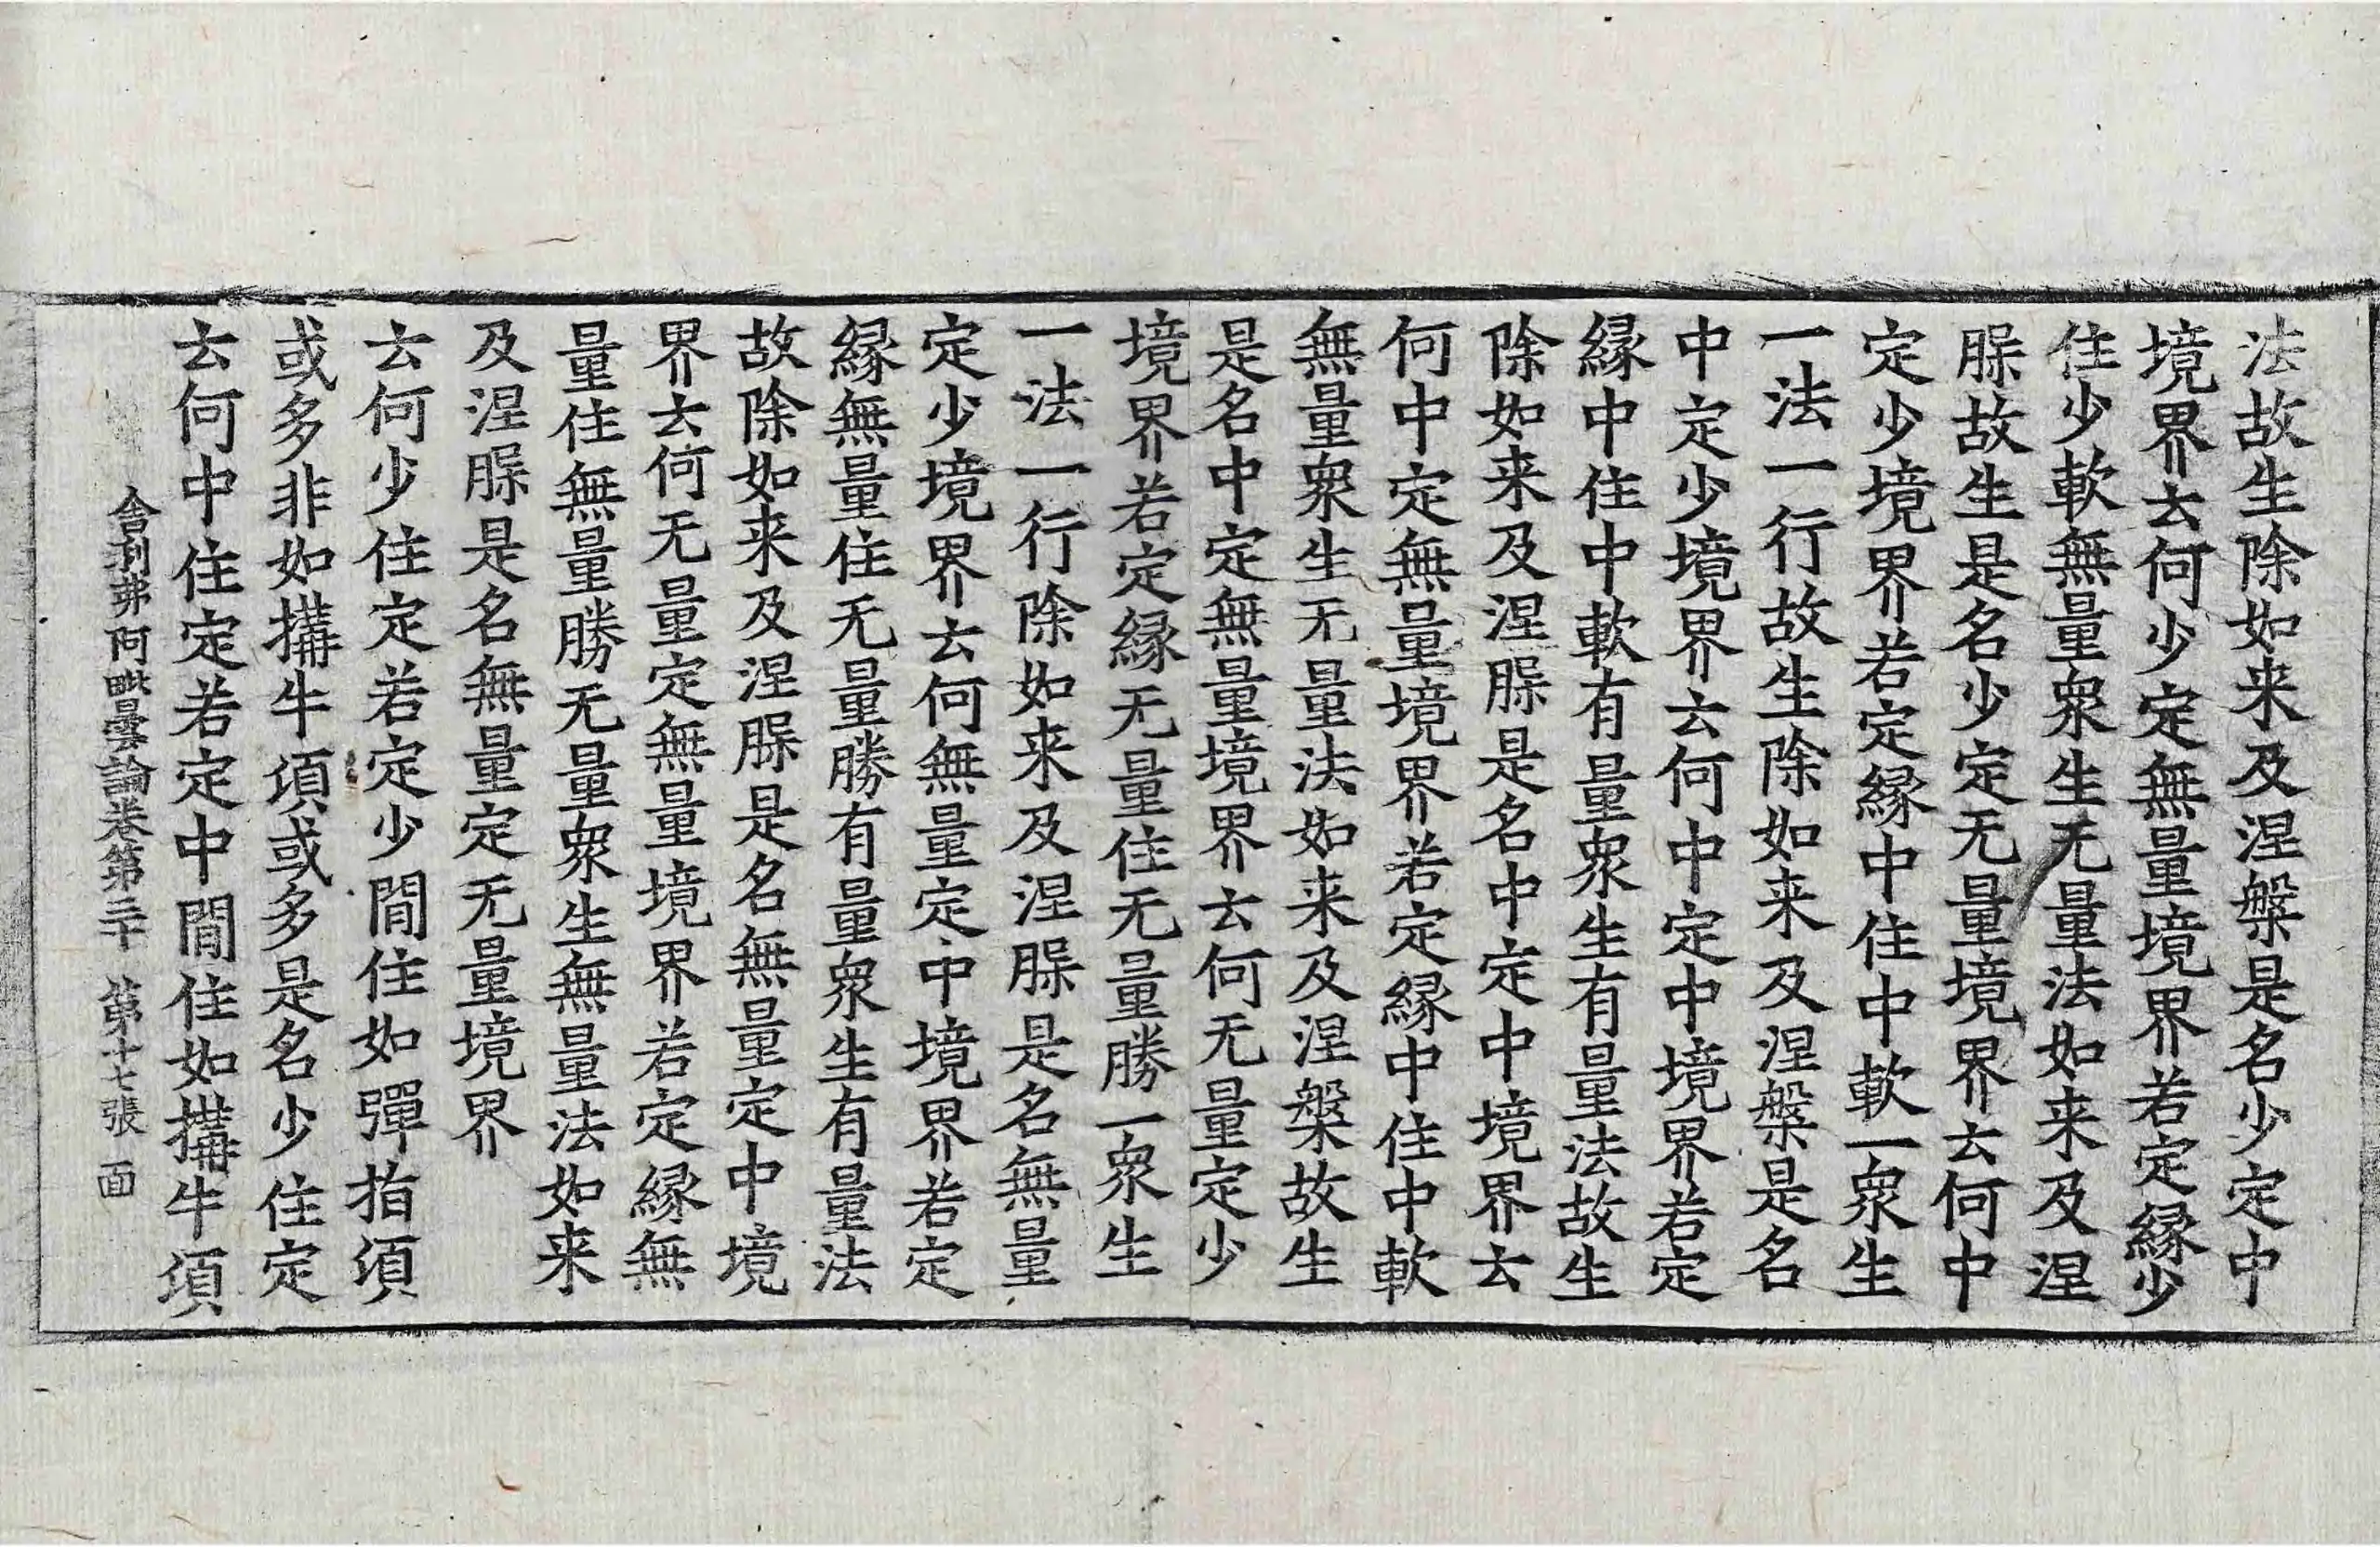 法故生除如来及涅槃是名少定中
境界去何少定無量境界若定緣少
住少軟無量衆生无量法如来及涅
𦛨故生是名少定无量境界去何中
定少境界若定緣中住中軟一衆生
一法一行故生除如来及涅槃是名
中定少境界去何中定中境界若定
緣中住中軟有量衆生有量法故生
除如来及涅𦛨是名中定中境界去
何中定無量境界若定緣中住中軟
無量衆生无量法如来及涅槃故生
是名中定無量境界去何无量定少
境界若定緣无量住无量勝一衆生
一法一行除如来及涅𦛨是名無量
定少境界去何無量定中境界若定
緣無量住无量勝有量衆生有量法
故除如来及涅𦛨是名無量定中境
界去何无量定無量境界若定緣無
量住無量勝无量衆生無量法如来
及涅𦛨是名無量定无量境界
去何少住定若定少閒住如彈指湏
或多非如搆牛湏或多是名少住定
去何中住定若定中閒住如搆牛湏
舎利弗阿毗曇論卷第二十 第十七張 面